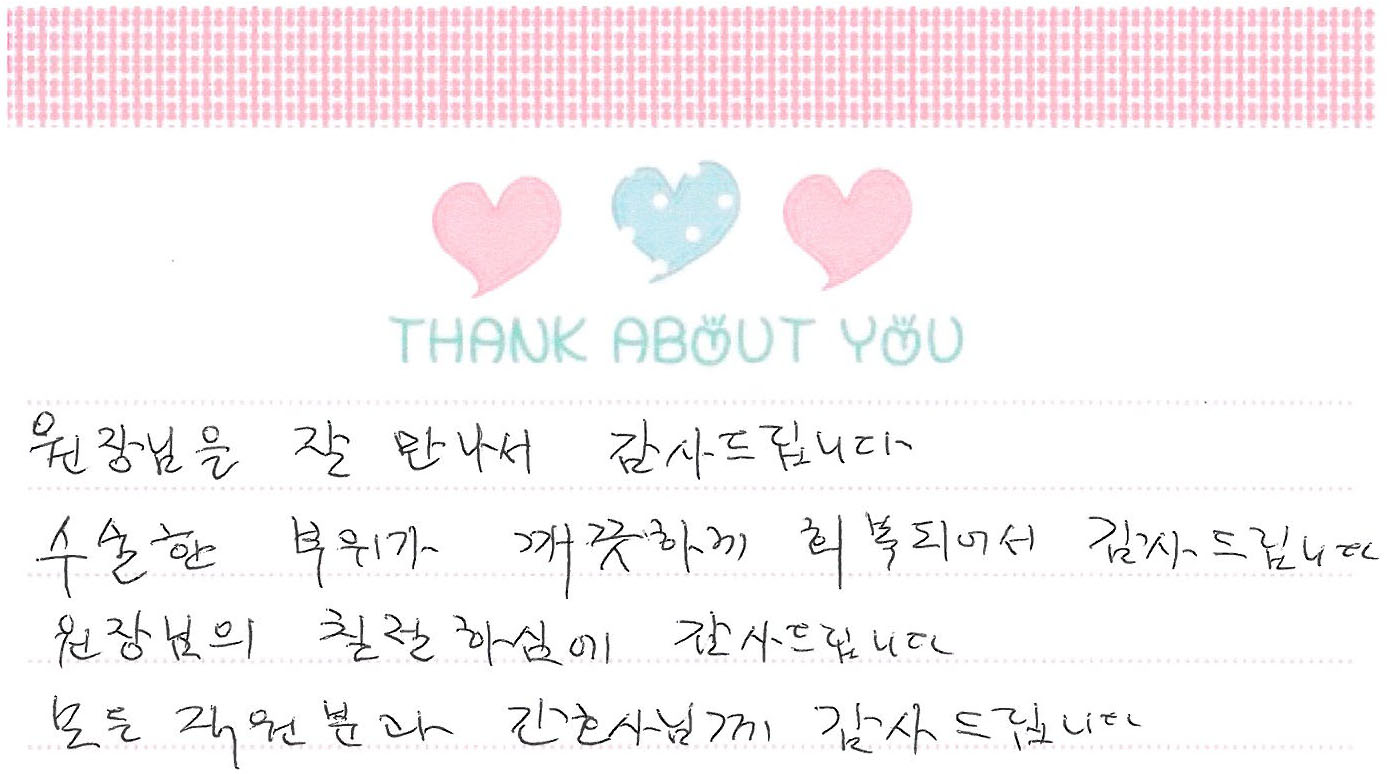 THANK ABOUT YOU
원장님을 잘 만나서 감사드립니다
수술한 부위가 깨끗하게 회복되어서 감사드립니다
원장님의 친절하심에 감사드립니다
모든 직원분과 간호사님께 감사드립니다